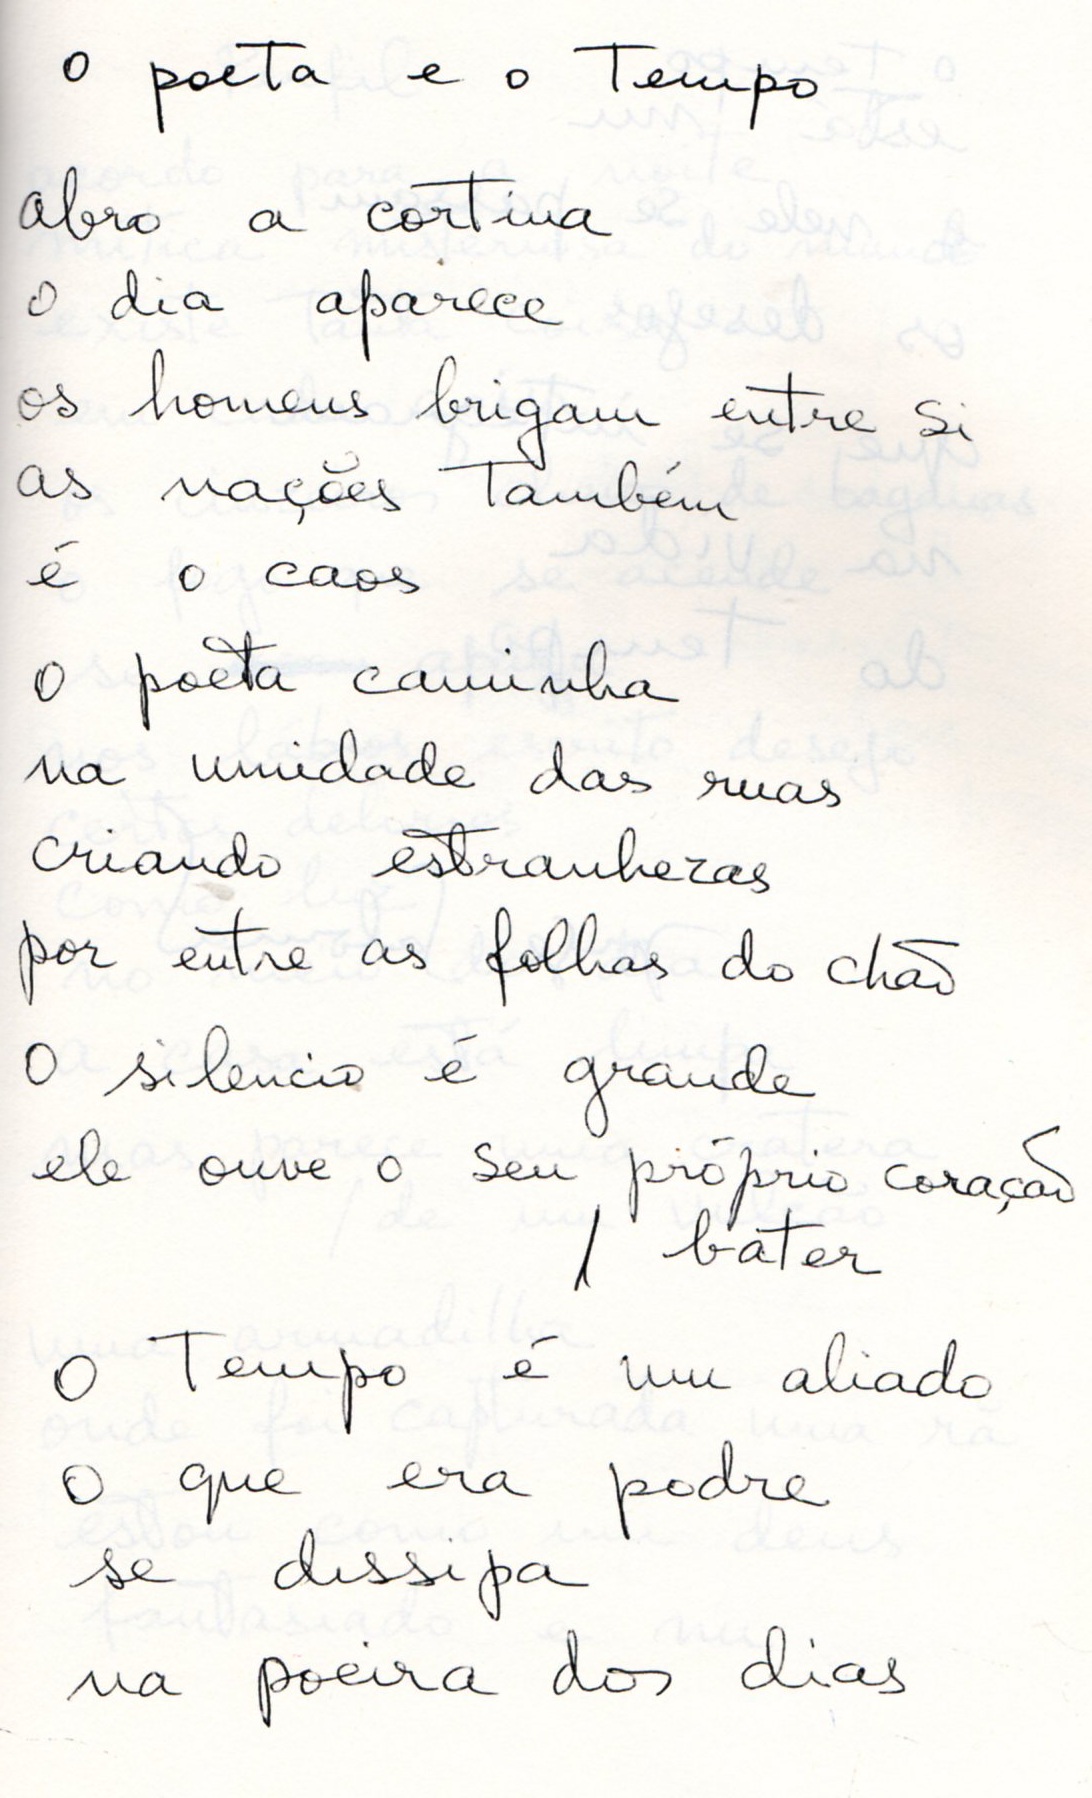 o poeta e o Tempo
abro a cortina
o dia aparece
os homens brigam entre si
as nações também
é o caos
o poeta caminha
na umidade das ruas
criando estranhezas
por entre as folhas do chão
o silencio é grande
ele ouve o seu próprio coração
/ bater
o Tempo é um aliado
o que era podre
se dissipa
na poeira dos dias